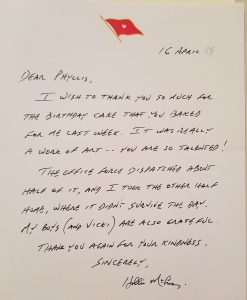 16 APRIL
DEAR PHYLLIS,
I WISH TO THANK YOU SO MUCH FOR
THE BIRTHDAY CAKE THAT YOU BAKED
FOR ME LAST WEEK. IT WAS REALLY
A WORK OF ART -- YOU ARE SO TALENTED!
THE OFFICE FORCE DISPATCHED ABOUT
HALF OF IT, AND I TOOK THE OTHER HALF
HOME, WHERE IT DIDN'T SURVIVE THE DAY.
MY BOYS (AND VICKI) ARE ALSO GRATEFUL.
THANK YOU AGAIN FOR YOUR KINDNESS.
SINCERELY,